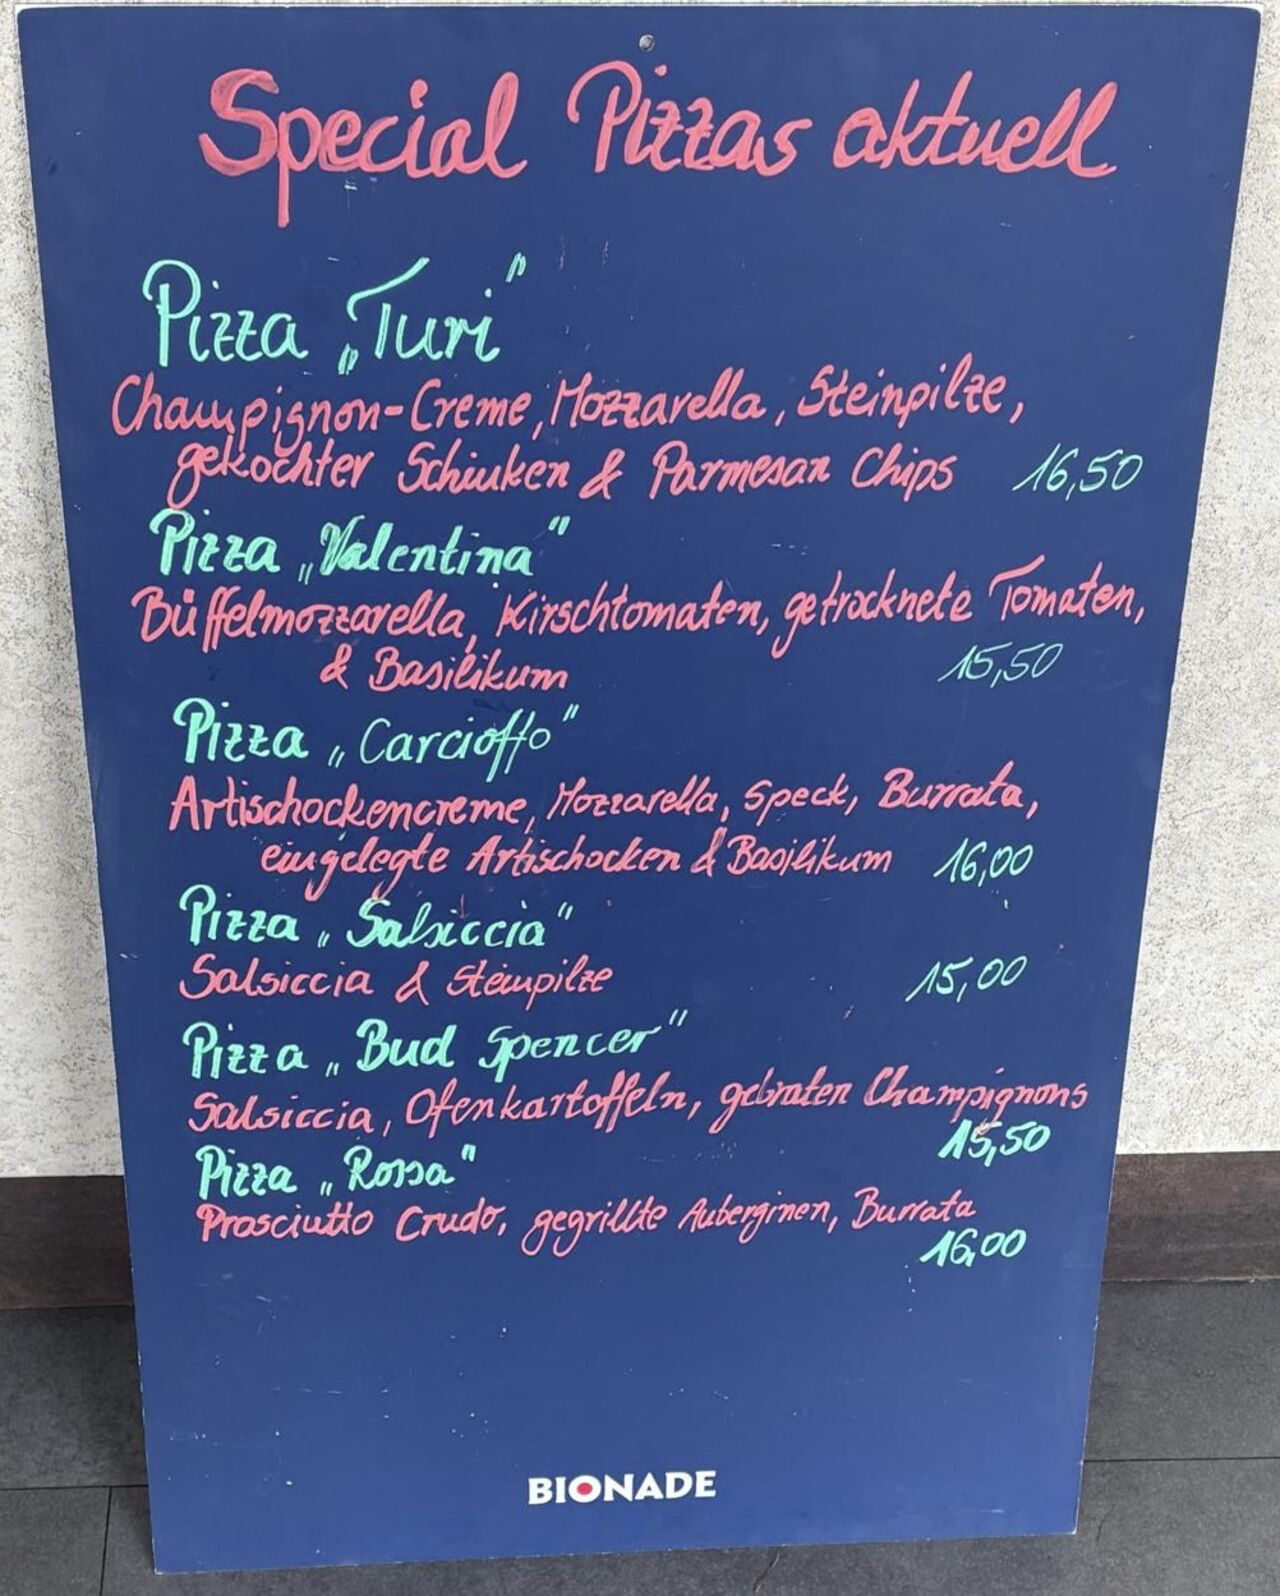 Special Pizzas aktuell
Pizza „Turi"
Champignon-Creme, Mozzarella, Steinpilze,
gekochter Schinken & Parmesan Chips 16,50
Pizza „Valentina"
Büffelmozzarella, Kirschtomaten, getrocknete Tomaten,
& Basilikum 15,50
Pizza „Carcioffo"
Artischockencreme, Mozzarella, Speck, Burrata,
eingelegte Artischocken & Basilikum 16,00
Pizza „Salsiccia"
Salsiccia & Steinpilze 15,00
Pizza „Bud Spencer"
Salsiccia, Ofenkartoffeln, gebraten Champignons
15,50
Pizza „Rossa"
Prosciutto Crudo, gegrillte Auberginen, Burrata
16,00
BIONADE